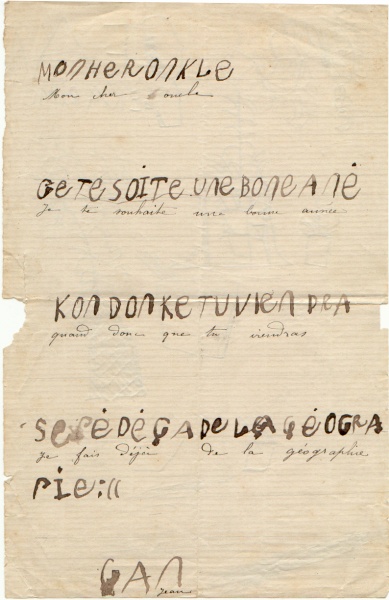 MONHERONKLE
Mon cher oncle
GETESOITE UNEBONEANÉ
Je te souhaite une bonne année
KONDONKETUVIENDRA
quand donc que tu viendras
SEFÈDÉGADELAGÉOGRA
Je fais déjà de la géographie
PIE:((
GAN
Jean